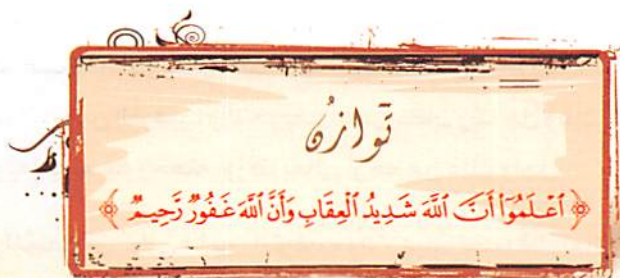 توازنُ
﴿ ٱعۡلَمُوٓاْ أَنَّ ٱللَّهَ شَدِيدُ ٱلۡعِقَابِ وَأَنَّ ٱللَّهَ غَفُورٞ رَّحِيمٞ ﴾